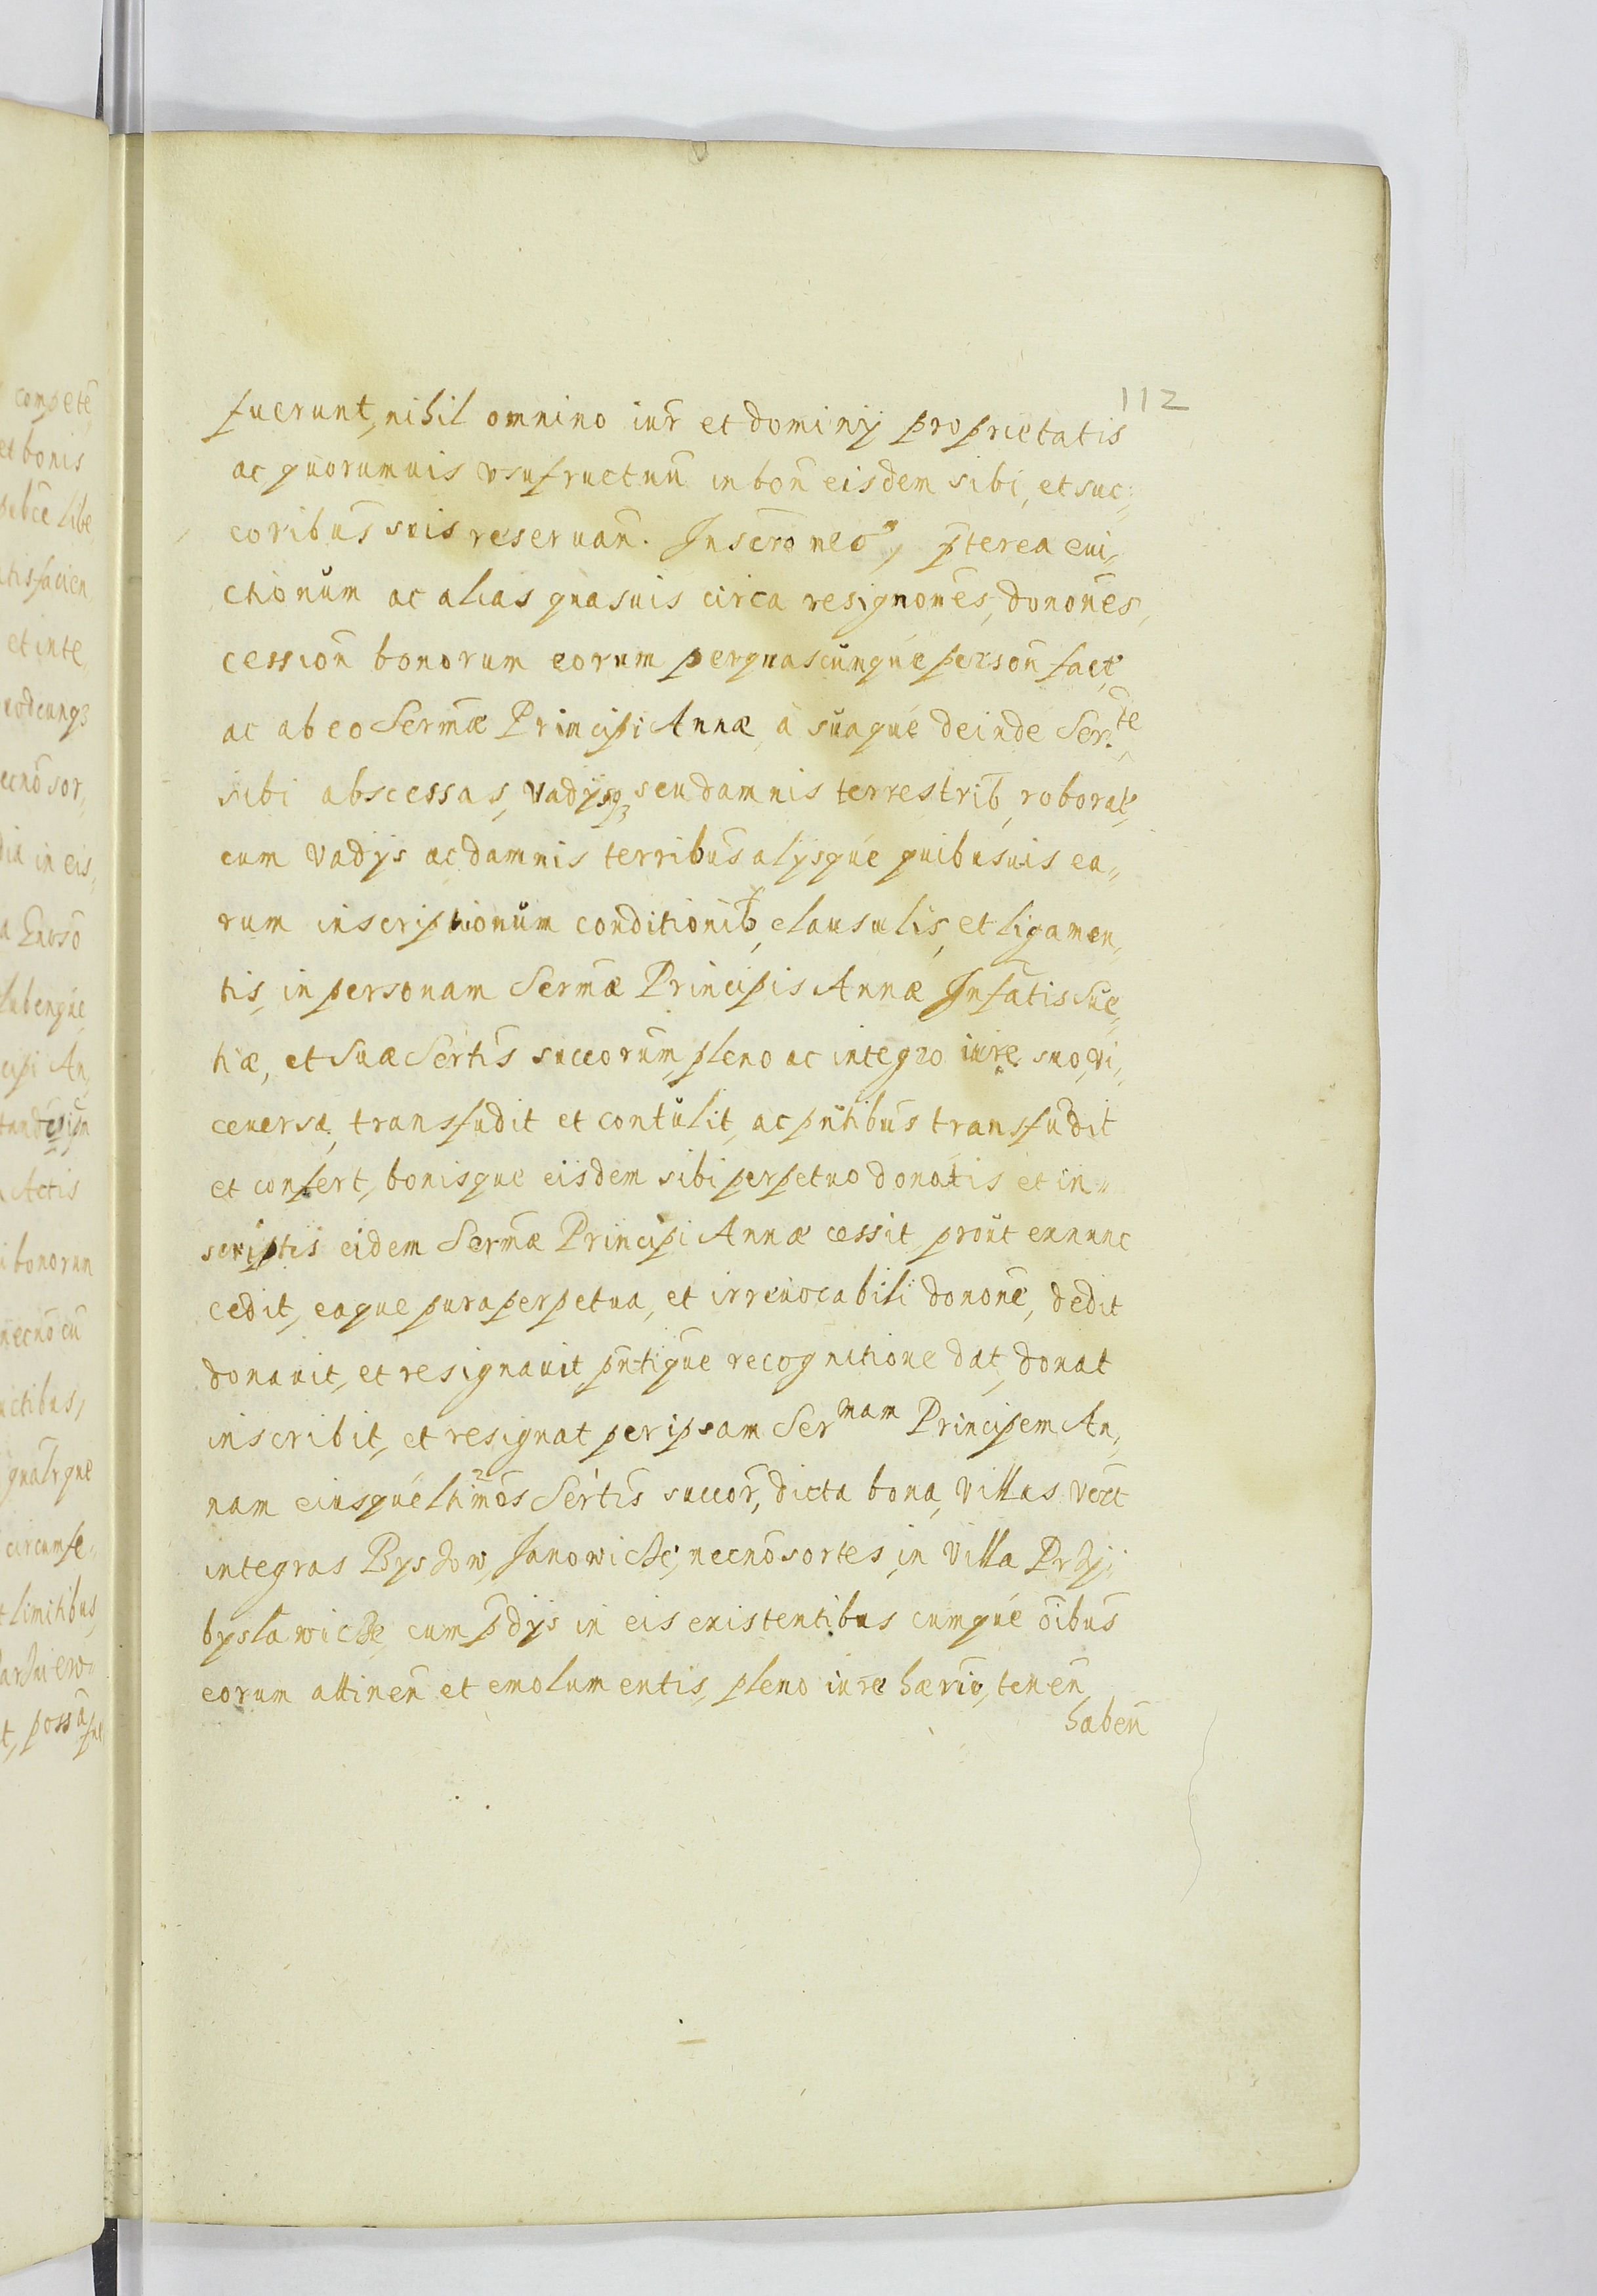 112
fuerunt, nihil omnino iur̄ et dominij proprietatis
ac quorumuis vsufructuū in bon̄ eisdem sibi, et suc¬
coribus̄ suis reseruan̄. Inscrōneō, p̄terea eui,,
ctionum ac alias quasuis circa resignōnes, donōnes,
cession̄ bonorum eorum perquascunqúe person̄ fact,
ac ab eo Serm̄æ Principi Annæ, à suaqué deinde Ser.te
sibi abscessas, vadijsq3 seu damnis terrestrib̄, roborat,
cum vadijs ac damnis terribus̄ alijsqúe quibusuis ea,,
rum inscriptionum conditionib̄, clausulis, et ligamen,,
tis, in personam Serm̄æ Principis Annæ Infātis Sue,,
tiæ, et Suæ Sertis̄ succorum̄, pleno ac integro iure suo, vi,,
ceuersa, transfudit et contulit, ac pn̄tibus̄ transfudit
et confert, bonisque eisdem sibi perpetuo donatis et in,,
scriptis eidem Serm̄æ Principi Annæ cessit, proút exnunc
cedit, eaque pura perpetua, et irreuocabili donōne, dedit
donauit, et resignauit, pn̄tique recognitione dat, donat
inscribit, et resignat per ipsam Sermam Principem An,,
nam eiusqué ltimōs Sertis̄ succor̄, dicta bona, Villas vert
integras Bysdow, Janowicze, necnō sortes, in Villa Przy,,
bysławicze, cum p̄dijs in eis existentibus cumqúe oībus̄
eorum attinen̄ et emolumentis, pleno iure hærio, tenen̄,
haben̄
compete
et bonis
libe
tisfacien
et inte,,
uodcunq3
ecnō sor,,
dia in eis,,
lubenqúe
cipi An,,
Actis
bonorum
necnō cū
ctibus,
circumfe,,
limitibus,
t, possa